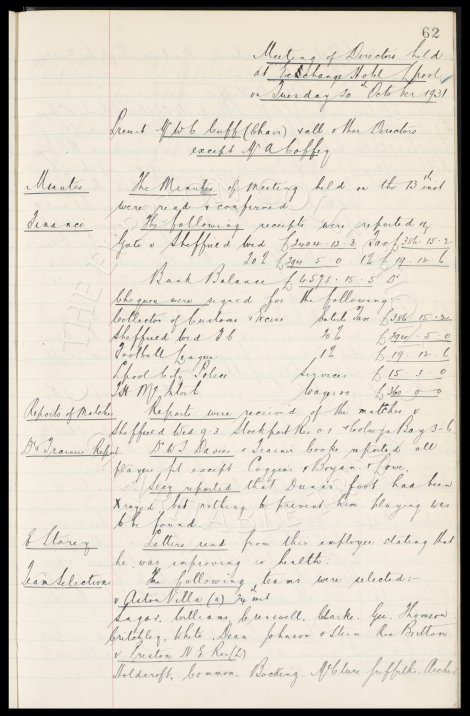 62
Meeting of Directors held
at Exchange Hotel L'pool
on Tuesday 20th October 1931
Present Mr W C Cuff (Chair) & all other Directors
except Mr A Coffey
Minutes The Minutes of meeting held on the 13th inst
were read & confirmed
Finance The following receipts were reported
Gate v Sheffield Wed £3404.12.3 Tax £386.15.2
20% £394.5.0 1% £19.12.6
Bank Balance £4598.15.5
Cheques were signed for the following:
Collector of Customs & Excise Entert Tax £386.15.2
Sheffield Wed F C 20% £394.5.0
Football League 1% £19.12.6
L'pool City Police Services £15.3.0
T H McIntosh Wages &c £360.0.0
Reports of Matches Reports were received of the matches v
Sheffield Wed 9-3 Stockport Res 0-1 & Colwyn Bay 3-6
Dr & Trainers Report Dr W J Davies & Trainer Cooke reported all
players fit except Coggins & Bryan & Lowe.
Secy reported that Dunns foot had been
Xrayed but nothing to prevent him playing was
to be found.
E Storey Letters read from this employee stating that
he was improving in health.
Team Selection The following teams were selected:-
v Aston Villa (a) 24th inst
Sagar, Williams, Cresswell, Clarke, Gee, Thomson
Critchley, White, Dean, Johnson & Stein Res Britton
v Preston N E Res (L)
Holdcroft, Common, Bocking, McClure, Griffiths, Archer